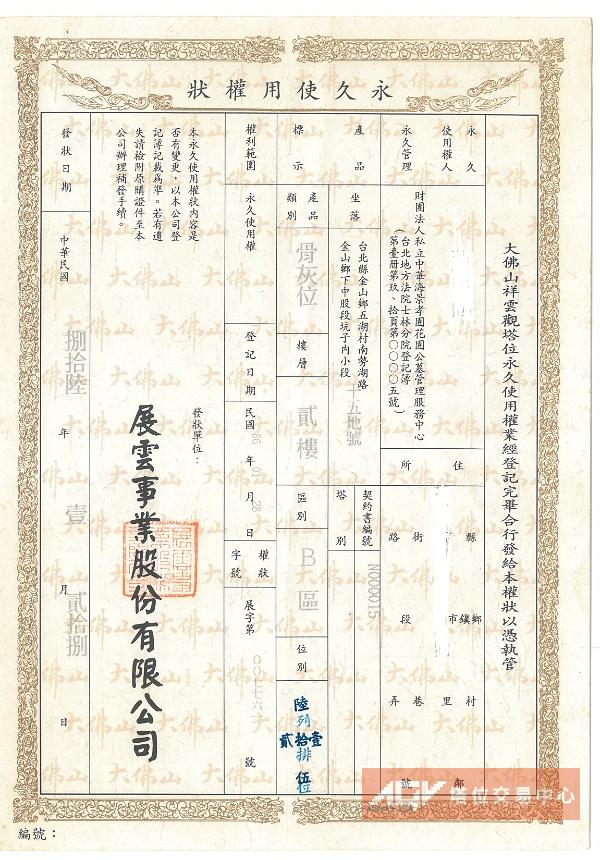 永久使用權狀
大佛山祥雲觀塔位永久使用權業經登記完畢合行發給本權狀以憑執管
永久使用權人
住所
縣市
鄉鎮
村里
鄰
街路
段
巷弄
號
永久管理
財團法人私立中華海景孝園花園公墓管理服務中心
(台北地方法院士林分院登記簿
第壹册第玖、拾頁第〇〇〇〇五號)
產品標示
坐落
台北縣金山鄉五湖村南勢湖路
金山鄉下中股段坑子內小段
十五地號
契約書編號
N000015
塔別
產品類別
骨灰位
樓層
貳樓
區別
B區
位別
陸列
貳拾壹排
伍位
權利範圍
永久使用權
登記日期
民國86年01月28日
權狀字號
展字第〇〇七七六號
本永久使用權狀內容是
否有變更,以本公司登
記簿記載為準。若有遺
失請檢附原購證件至本
公司辦理補發手續。
發狀單位:
展雲事業股份有限公司
發狀日期
中華民國捌拾陸年壹月貳拾捌日
編號:
塔位交易中心